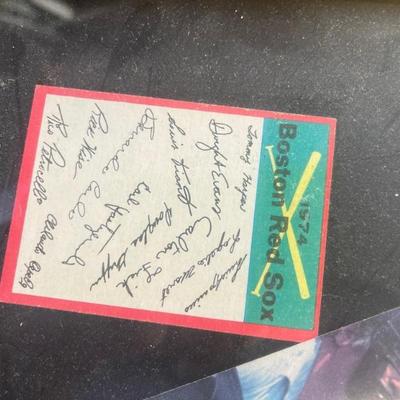 1974
Boston Red Sox
Tommy Harper
Dwight Evans
Luis Tiant
Rogelio Moret
Carlton Fisk
Bernardo Carbo
Douglas Griffin
Carl Yastrzemski
Rick Wise
Rico Petrocelli
Orlando Cepeda